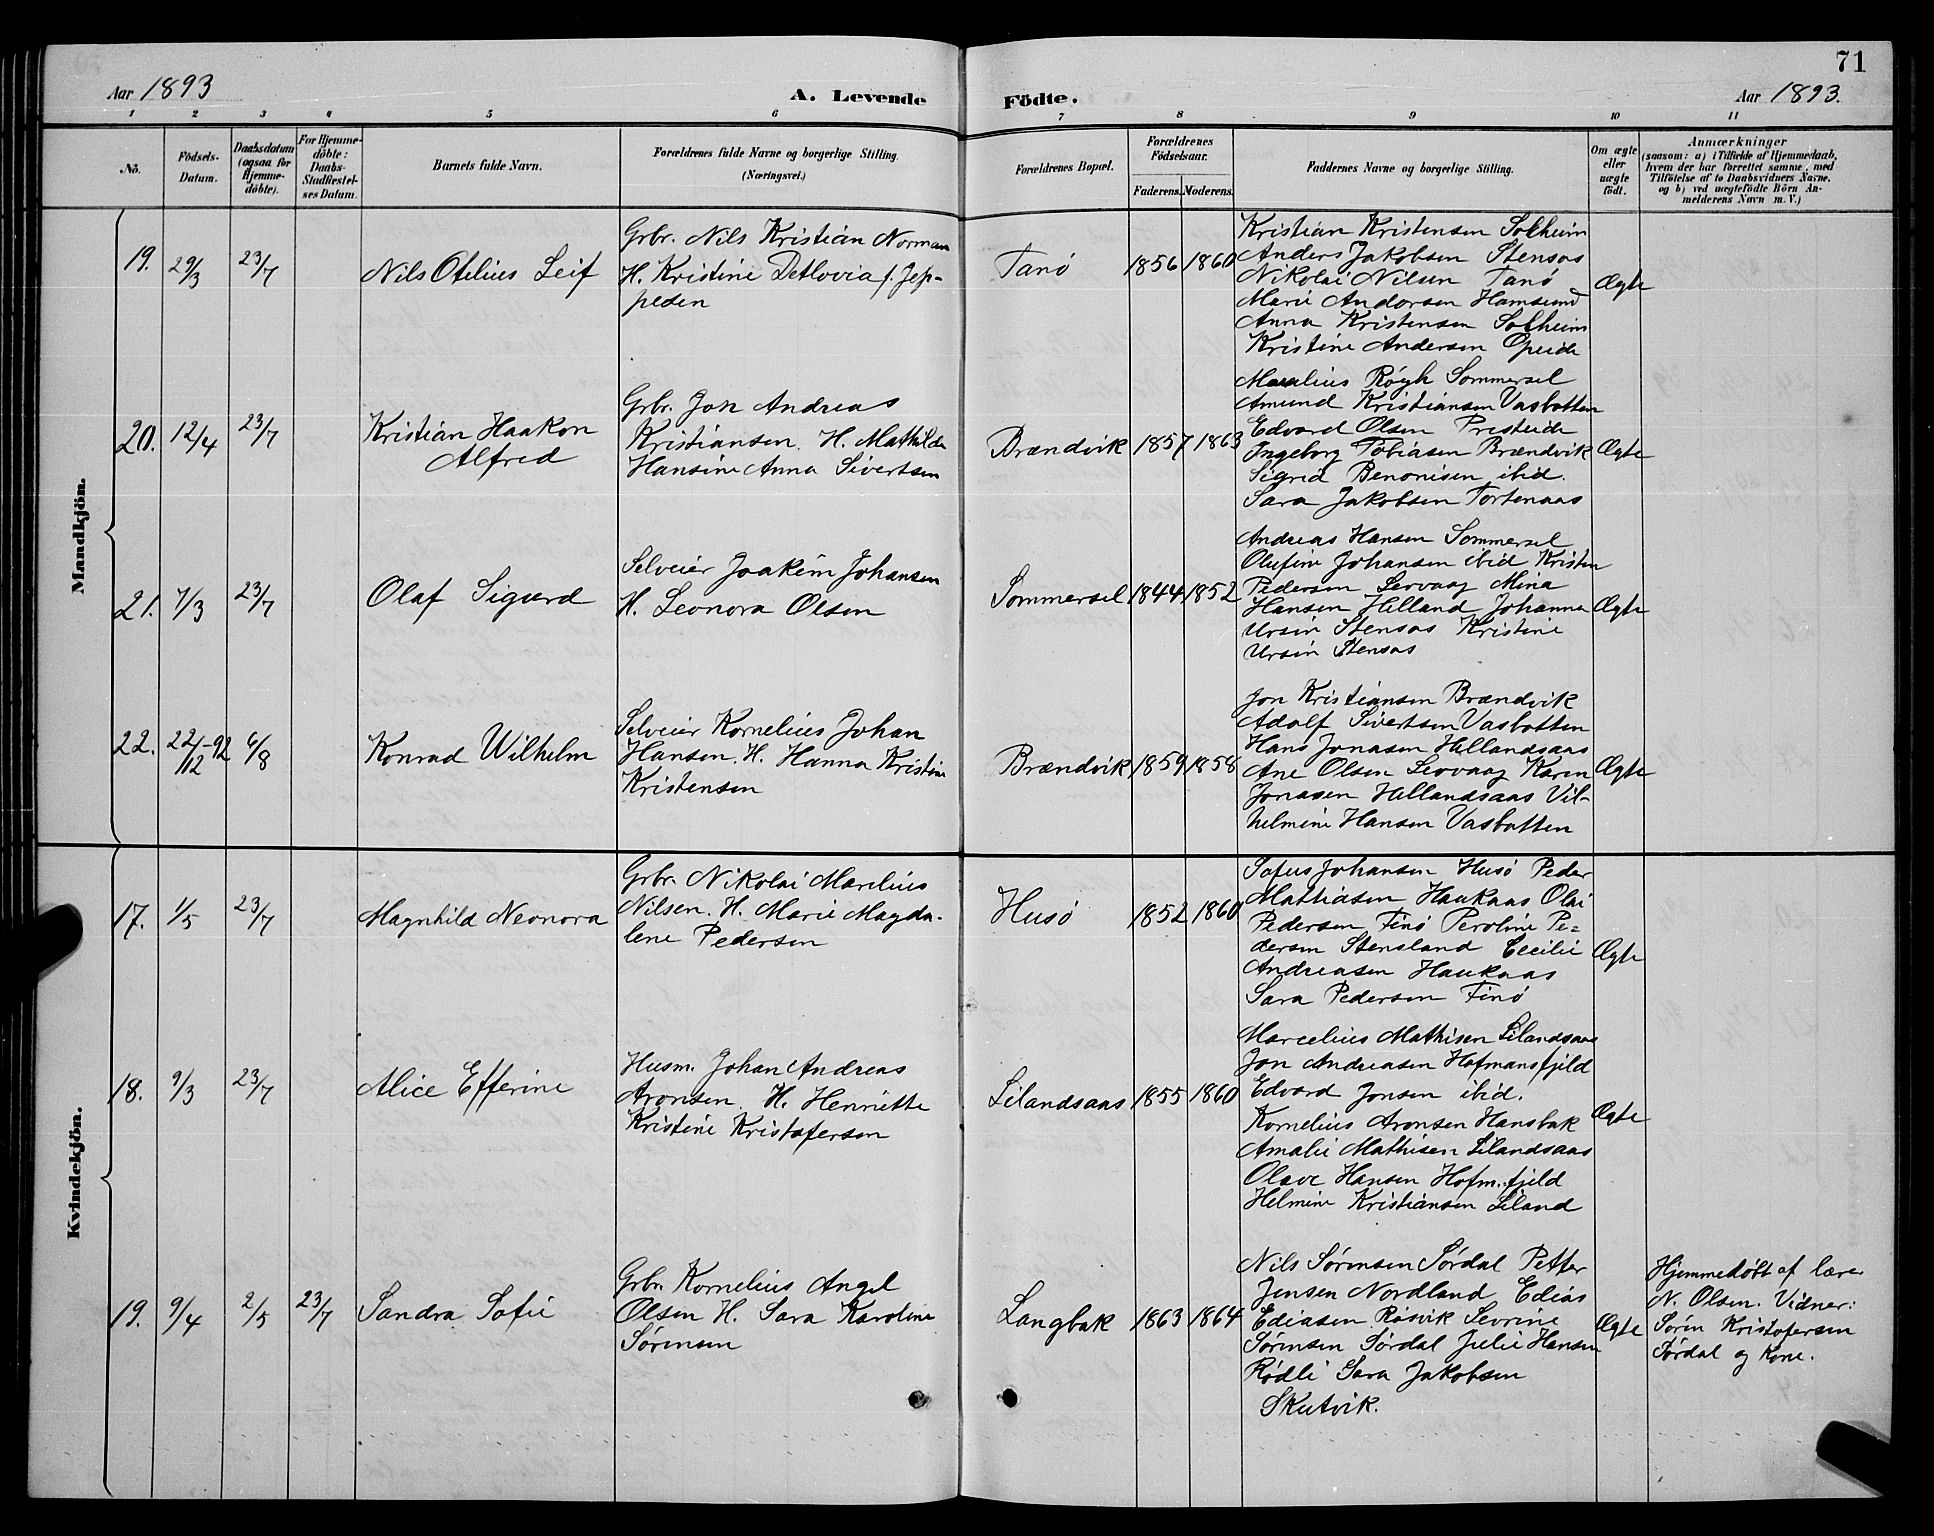 71
Aar 1893
A. Levende
Födte.
Aar 1893.
1 2 3 4 5 6 7 8 9 10 11
No.
Födsels-
Datum.
Daabsdatum
(ogsaa for
Hjemme-
döbte).
For Hjemme-
döbte:
Daabs-
Stadfæstel-
ses Datum.
Barnets fulde Navn.
Forældrenes fulde Navne og borgerlige Stilling.
(Næringsvei.)
Forældrenes Bopæl.
Forældrenes
Födselsaar.
Faderens. Moderens.
Faddernes Navne og borgerlige Stilling.
Om ægte
eller
uægte
födt.
Anmærkninger
(saasom: a) i Tilfælde af Hjemmedaab,
hvem der har forrettet samme, med
Tilföielse af to Daabsvidners Navne,
og b) ved uægtefödte Börn An-
melderens Navn m. V.)
Mandkjön.
19. 29/3 23/7
Nils Otelius Leif
Grbr. Nils Kristian Norman
H. Kristine Detlovia f. Jep-
pesen
Tanö 1856 1860
Kristian Kristensen Solheim
Anders Jakobsen Stensos
Nikolai Nilsen Tanö
Marie Andorsen Hamsund
Anna Kristensen Solheim
Kristine Andersen Opeide
Ægte
20. 12/4 23/7
Kristian Haakon
Alfred
Grbr. Jon Andreas
Kristiansen. H. Mathilde
Hansine Anna Sivertsen
Brændvik 1857 1863
Röyk Sommersel
Amund Kristiansen Vasbotten
Edvard Olsen Presteide
Ingeborg Tobiasen Brændvik
Sigrid Benonisen ibid.
Sara Jakobsen Tortenaas
Ægte
21. 7/3 23/7
Olaf Sigurd
Selveier Joakim Johansen
H. Leonora Olsen
Sommersel 1844 1852
Andreas Hansen Sommersel
Olufine Johansen ibid Kristen
Pedersen Leovaag Mina
Hansen Helland Johanna
Ursin Stensos Kristine
Ursin Stensos
Ægte
22. 22/12-92 6/8
Konrad Wilhelm
Selveier Kornelius Johan
Hansen. H. Hanna Kristine
Kristensen
Brændvik 1859 1858
Jon Kristiansen Brændvik
Adolf Sivertsen Vasbotten
Hans Jonasen Hellandsaas
Ane Olsen Leovaag Karen
Jonasen Hellandsaas Vil-
helmine Hansen Vasbotten
Ægte
Kvindekjön.
17. 1/5 23/7
Magnhild Neonora
Grbr. Nikolai Marelius
Nilsen. H. Marie Magda-
lene Pedersen
Husö 1852 1860
Sofus Johansen Husö Peder
Mathiasen Haukaas Olai
Pedersen Finö Peroline Pe-
dersen Stensland Cecilie
Andreasen Haukaas
Sara Pedersen Finö
Ægte
18. 9/3 23/7
Alice Efferine
Husm. Johan Andreas
Aronsen. H. Henriette
Kristine Kristofersen
Lilandsaas 1855 1860
Marcelius Mathisen Lilandsaas
Jon Andreasen Hofmansfjeld
Edvard Jonsen ibid.
Kornelius Aronsen Hansbak
Amalie Mathisen Lilandsaas
Olave Hansen Hofm.fjeld
Helmine Kristiansen Liland
Ægte
19. 9/4 2/5 23/7
Sandra Sofie
Grbr. Kornelius Angel
Olsen H. Sara Karoline
Sörensen
Langbak 1863 1864
Nils Sörensen Sördal Petter
Jensen Nordland Edias
Ediasen Rösvik Sevrine
Sörensen Sördal Julie Hansen
Rödli Sara Jakobsen
Skutvik.
Ægte
Hjemmedöbt af lærer
N. Olsen. Vidner:
Sören Kristofersen
Sördal og Kone.